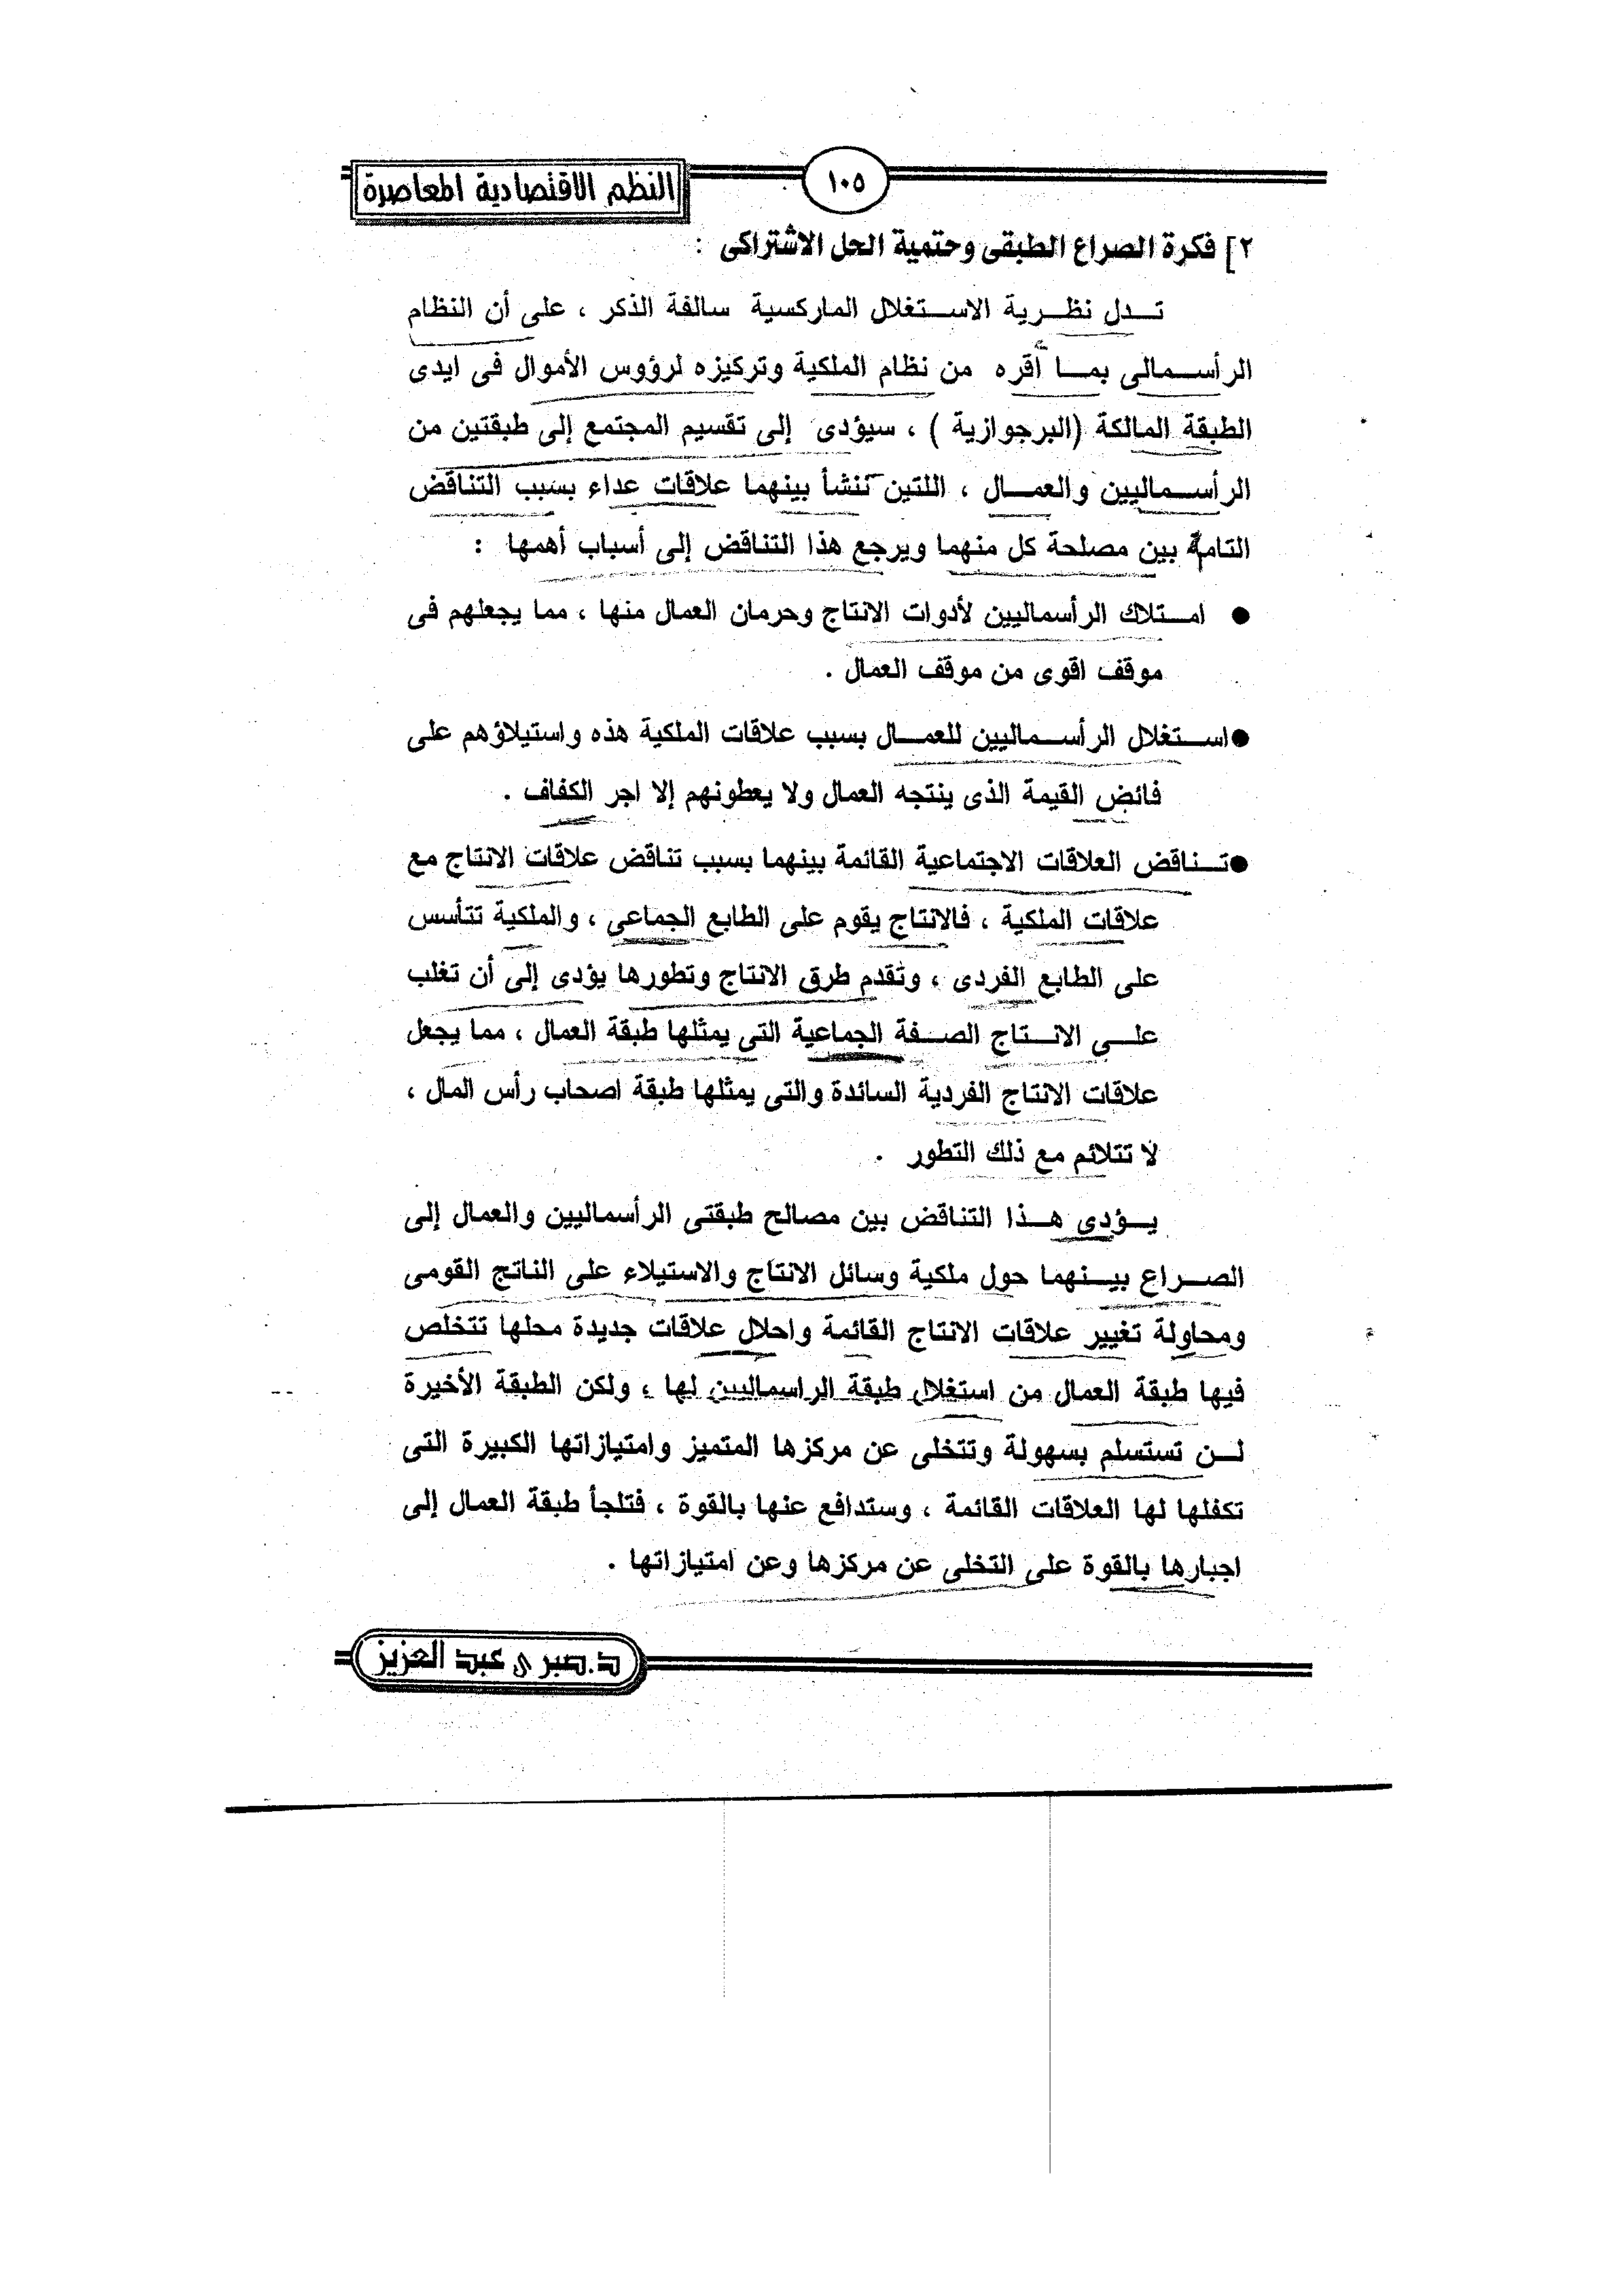 النظم الاقتصادية المعاصرة
١٠٥
٢] فكرة الصراع الطبقى وحتمية الحل الاشتراكى :
تدل نظرية الاستغلال الماركسية سالفة الذكر ، على أن النظام
الرأسمالى بما أقره من نظام الملكية وتركيزه لرؤوس الأموال فى ايدى
الطبقة المالكة (البرجوازية ) ، سيؤدى إلى تقسيم المجتمع إلى طبقتين من
الرأسماليين والعمال ، اللتين تنشأ بينهما علاقات عداء بسبب التناقض
التام بين مصلحة كل منهما ويرجع هذا التناقض إلى أسباب أهمها :
● امتلاك الرأسماليين لأدوات الانتاج وحرمان العمال منها ، مما يجعلهم فى
موقف اقوى من موقف العمال .
● استغلال الرأسماليين للعمال بسبب علاقات الملكية هذه واستيلاؤهم على
فائض القيمة الذى ينتجه العمال ولا يعطونهم إلا اجر الكفاف .
● تناقض العلاقات الاجتماعية القائمة بينهما بسبب تناقض علاقات الانتاج مع
علاقات الملكية ، فالانتاج يقوم على الطابع الجماعى ، والملكية تتأسس
على الطابع الفردى ، وتقدم طرق الانتاج وتطورها يؤدى إلى أن تغلب
على الانتاج الصفة الجماعية التى يمثلها طبقة العمال ، مما يجعل
علاقات الانتاج الفردية السائدة والتى يمثلها طبقة اصحاب رأس المال ،
لا تتلائم مع ذلك التطور .
يؤدى هذا التناقض بين مصالح طبقتى الرأسماليين والعمال إلى
الصراع بينهما حول ملكية وسائل الانتاج والاستيلاء على الناتج القومى
ومحاولة تغيير علاقات الانتاج القائمة واحلال علاقات جديدة محلها تتخلص
فيها طبقة العمال من استغلال طبقة الراسماليين لها ، ولكن الطبقة الأخيرة
لن تستسلم بسهولة وتتخلى عن مركزها المتميز وامتيازاتها الكبيرة التى
تكفلها لها العلاقات القائمة ، وستدافع عنها بالقوة ، فتلجأ طبقة العمال إلى
اجبارها بالقوة على التخلى عن مركزها وعن امتيازاتها .
د.صبرى عبد العزيز